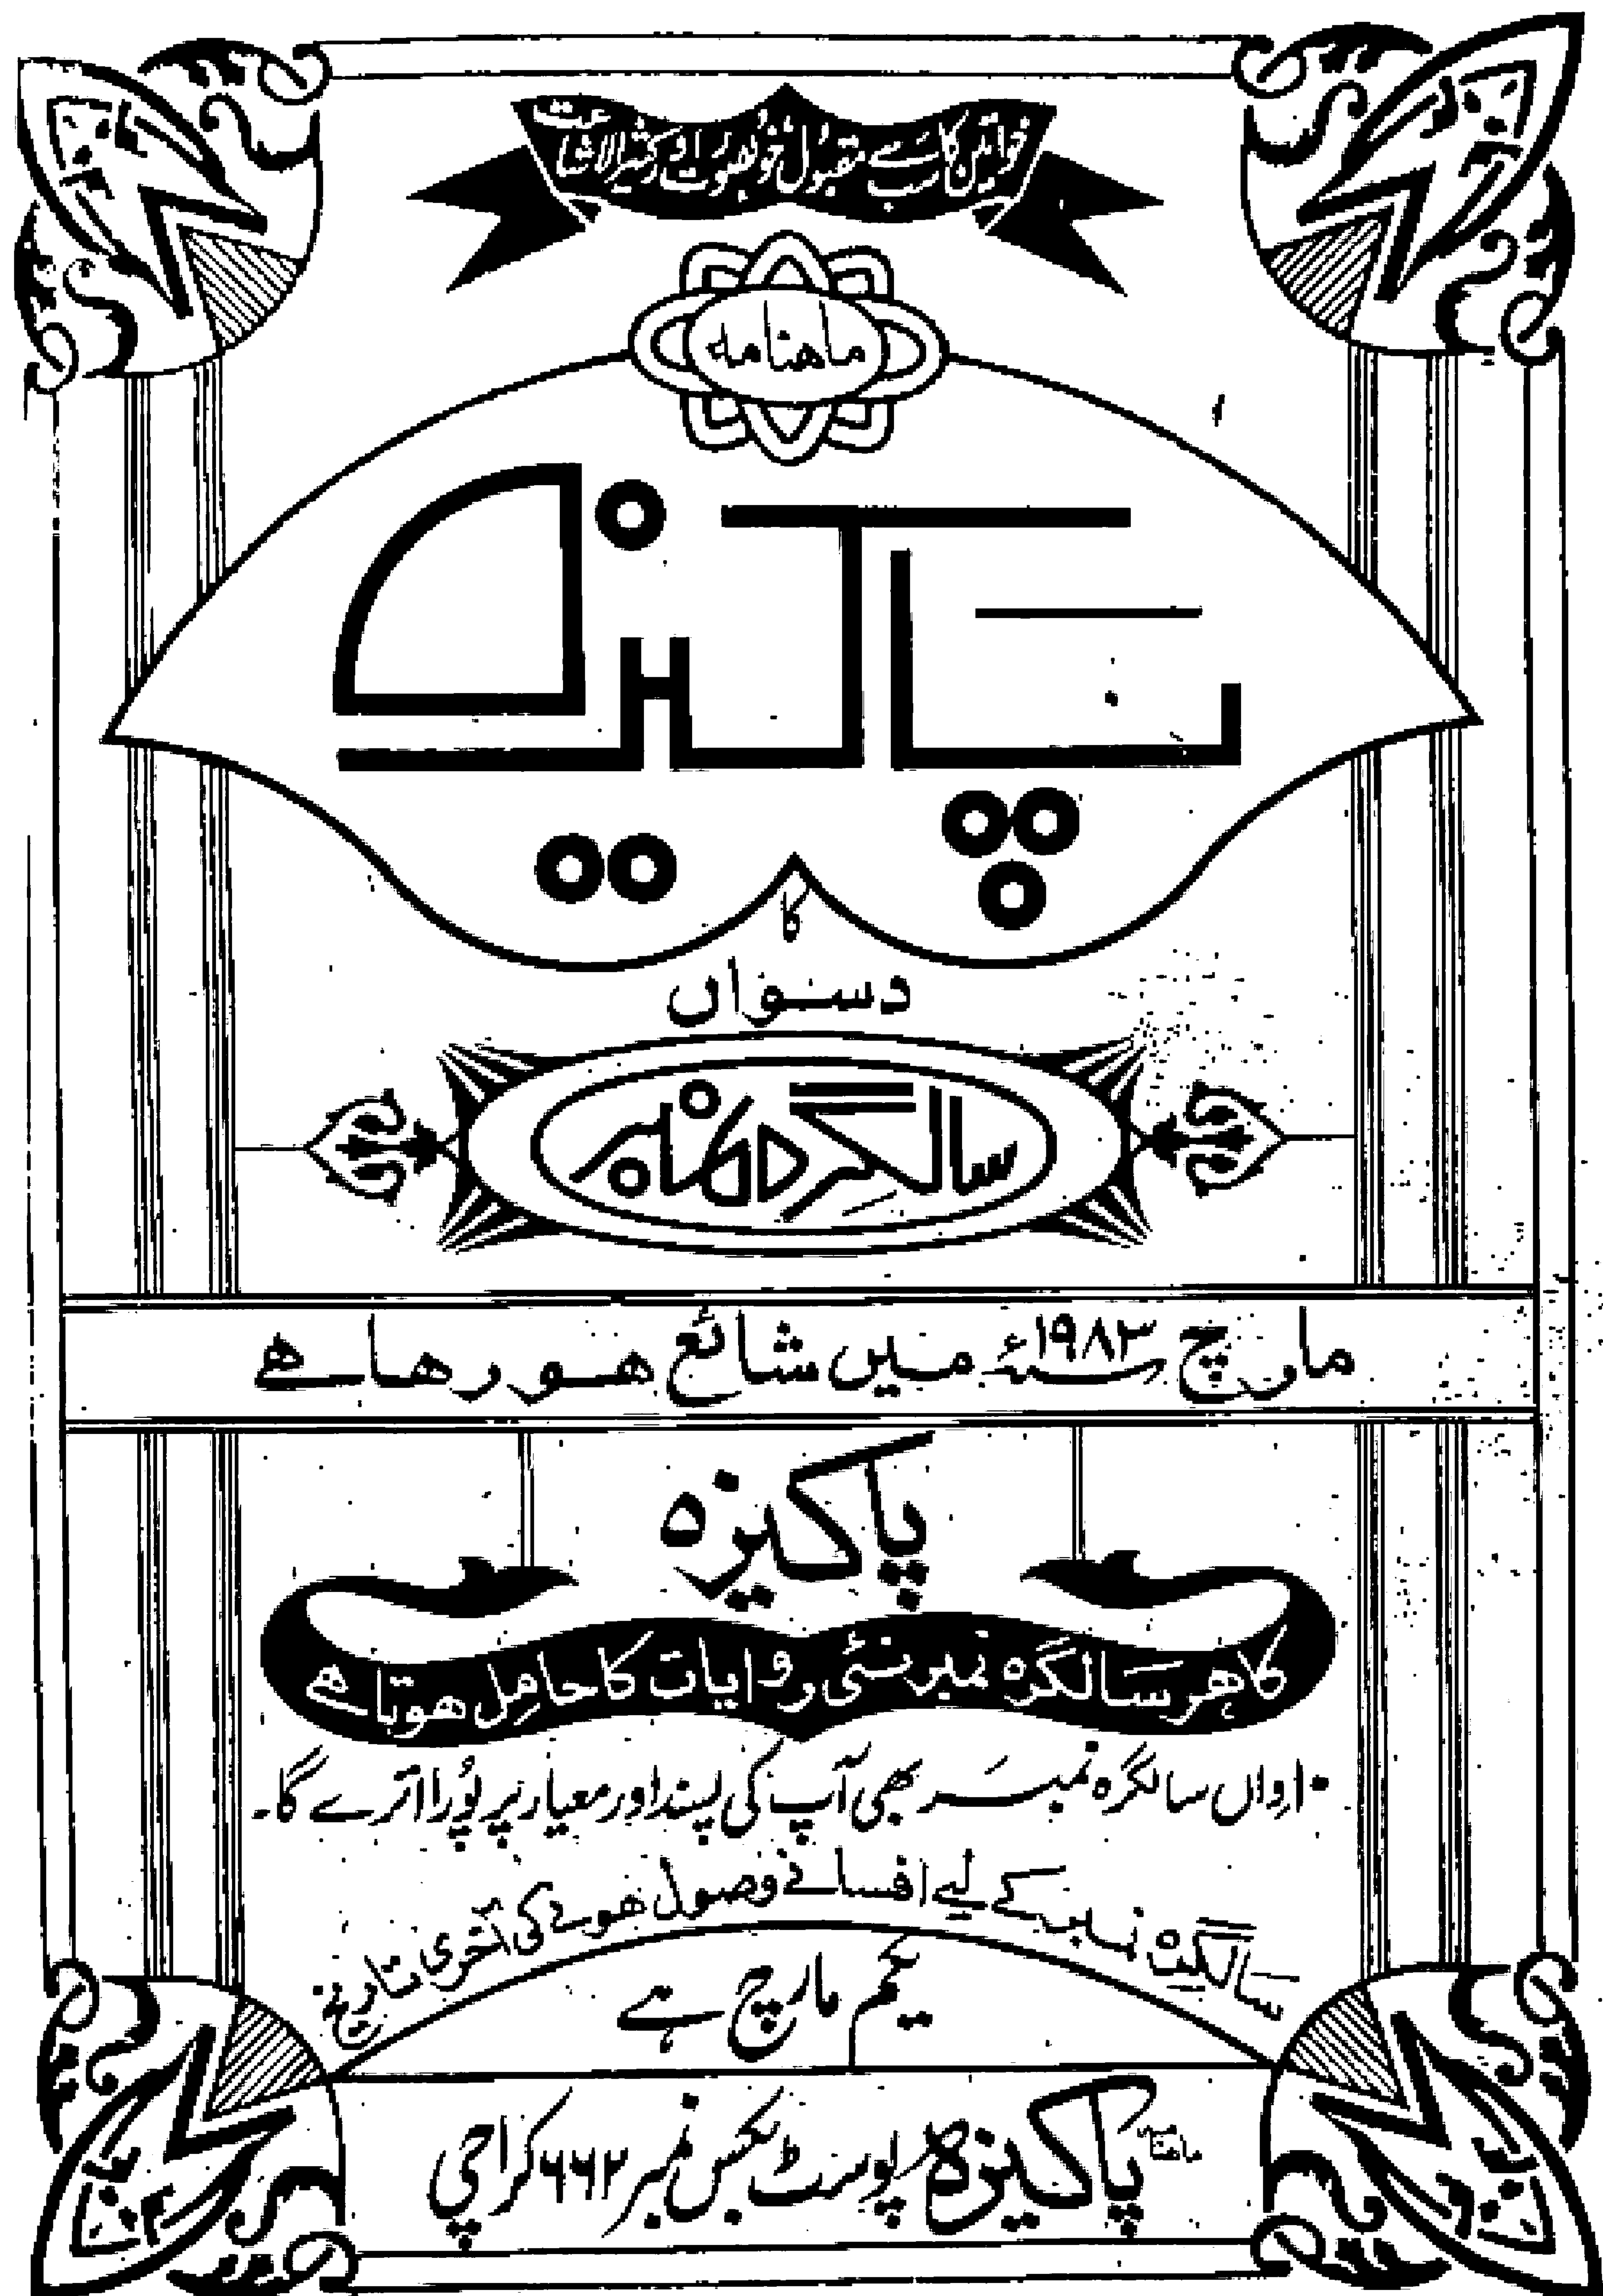 خواتین کا سب سے مقبول خوبصورت اور کثیرالاشاعت
ماهنامه
پاکیزہ
کا
دسواں
سالگرہ نمبر
مارچ ۱۹۸۳ء میں شائع هو رها هے
پاکیزہ
کا هر سالگرہ نمبر نئی روایات کا حامل هوتا هے
۱۰واں سالگرہ نمبر بھی آپ کی پسند اور معیار پر پُورا اترے گا۔
سالگرہ نمبر کے لیے افسانے وصول هونے کی آخری تاریخ
یکم مارچ ہے
ماهنامه پاکیزہ پوسٹ بکس نمبر ۶۶۲ کراچی